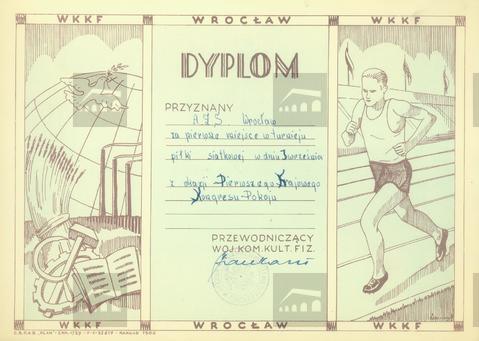 WKKF WROCŁAW WKKF
DYPLOM
PRZYZNANY
AZS Wrocław
za pierwsze miejsce w turnieju
piłki siatkowej w dniu 3 września
z okazji Pierwszego Krajowego
Kongresu Pokoju
PRZEWODNICZĄCY
WOJ. KOM. KULT. FIZ.
WKKF WROCŁAW WKKF